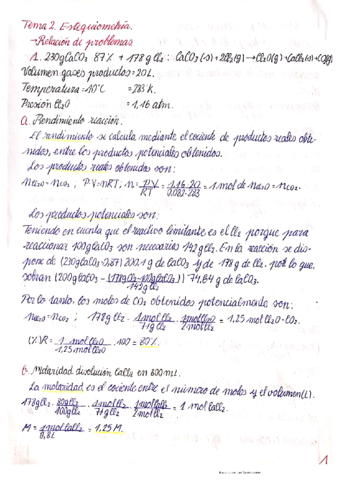 Tema 2. Estequiometría.
→Relación de problemas
1. 230g CaCO3 87% + 178g Cl2 : CaCO3(s) + 2Cl2(g) → Cl2O(g) + CaCl2(s) + CO2(g)
Volumen gases productos = 20L.
Temperatura = 10°C = 283 K.
Presión Cl2O = 1,16 atm.
a. Rendimiento reacción.
El rendimiento se calcula mediante el cociente de productos reales obte-
nidos, entre los productos potenciales obtenidos.
Los productos reales obtenidos son:
nCl2O = nCO2 , P·V = nRT, n = P·V/RT = 1,16·20/0,082·283 = 1 mol de nCl2O = nCO2.
Los productos potenciales son:
Teniendo en cuenta que el reactivo limitante es el Cl2 porque para
reaccionar 100g CaCO3 son necesarios 142g Cl2. En la reacción se dis-
pone de (230g CaCO3·0,87) 200,1 g de CaCO3 y de 178 g de Cl2, por lo que,
sobran (200g CaCO3 - (178g Cl2·100g CaCO3)/142g Cl2) 74,64 g de CaCO3.
Por lo tanto, los moles de CO2 obtenidos potencialmente son:
nCl2O = nCO2 ; 178g Cl2 · 1 mol Cl2/71g Cl2 · 1 mol Cl2O/2 mol Cl2 = 1,25 mol Cl2O = CO2.
(%)R = 1 mol Cl2O/1,25 mol Cl2O · 100 = 80%.
b. Molaridad disolución CaCl2 en 800mL.
La molaridad es el cociente entre el número de moles y el volumen (L).
178g Cl2 · 80g Cl2/100g Cl2 · 1 mol Cl2/71g Cl2 · 1 mol CaCl2/2 mol Cl2 = 1 mol CaCl2.
M = 1 mol CaCl2/0,8L = 1,25 M.
1